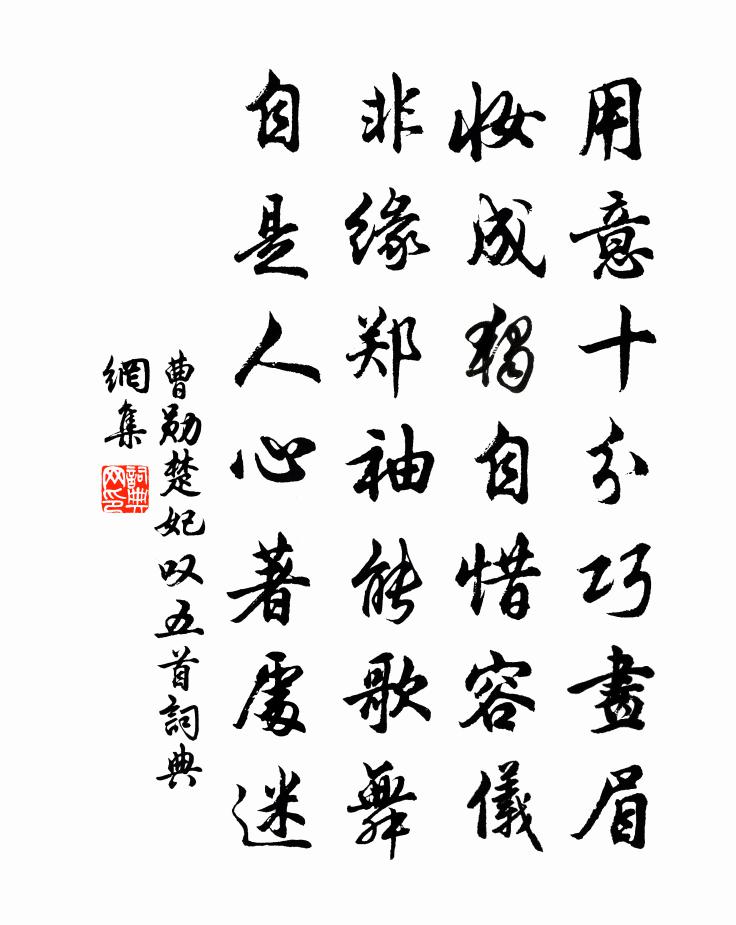 用意十分巧畫眉
妝成獨自惜容儀
非緣郑袖能歌舞
自是人心著處迷
曹勛楚妃叹五首詞典
網集
詞典
网印